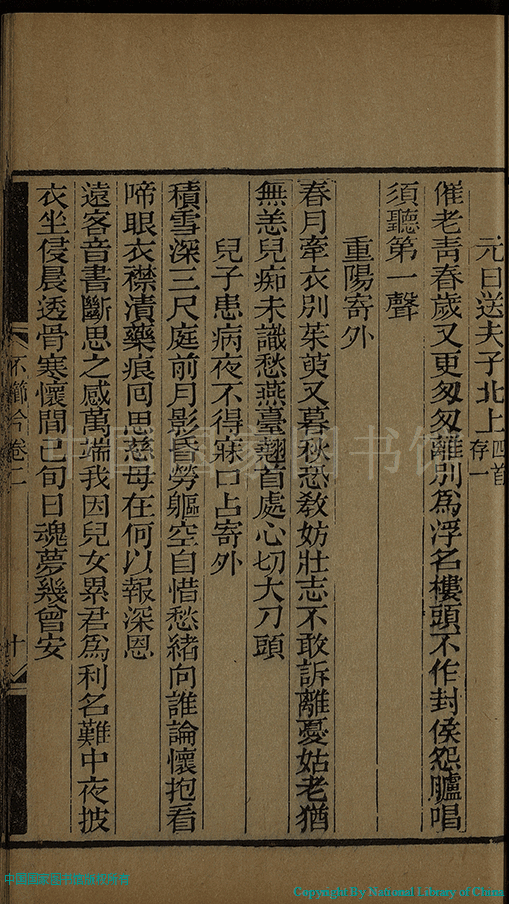 元日送夫子北上四首存一
催老靑春歲又更匆匆離別爲浮名樓頭不作封侯怨臚唱
須聽第一聲
重陽寄外
春月牽衣別茱萸又暮秋恐敎妨壯志不敢訴離憂姑老猶
無恙兒痴未識愁燕臺翹首處心切大刀頭
兒子患病夜不得寐口占寄外
積雪深三尺庭前月影昏勞軀空自惜愁緒向誰論懷抱看
啼眼衣襟漬藥痕囘思慈母在何以報深恩
遠客音書斷思之感萬端我因兒女累君爲利名難中夜披
衣坐侵晨透骨寒懷間已旬日魂夢幾曾安
不櫛吟卷二
十
中国国家图书馆
中国国家图书馆版权所有
Copyright By National Library of China